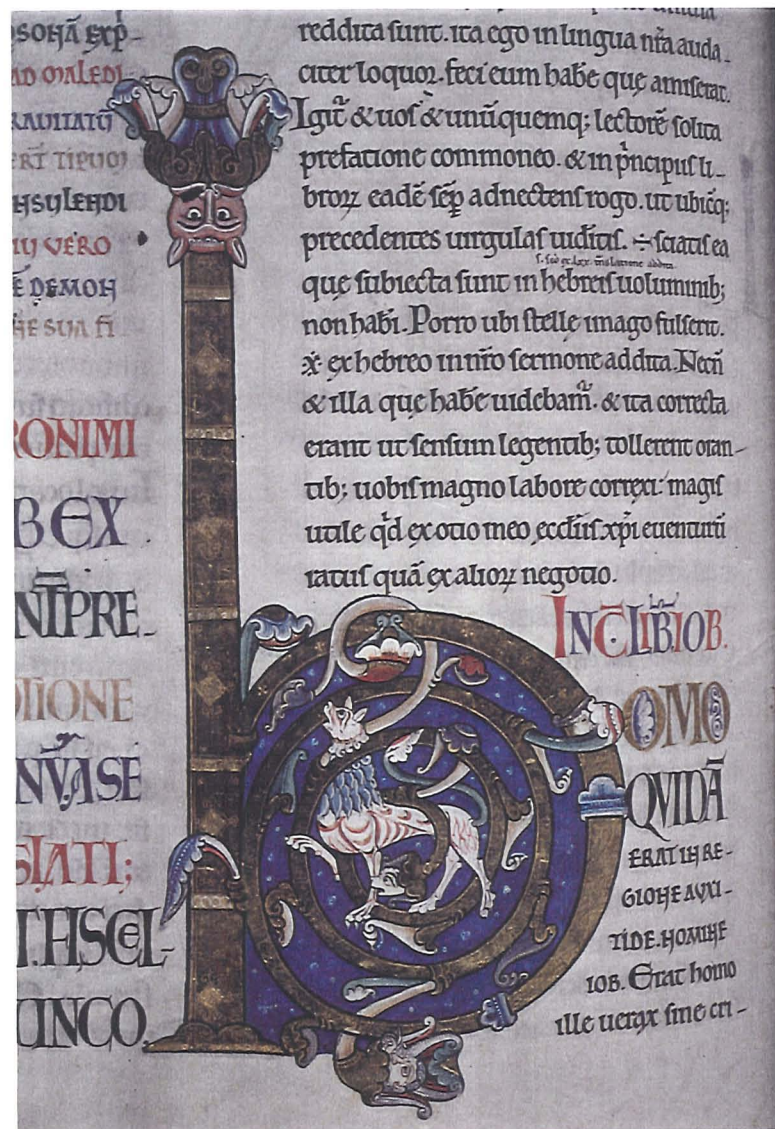 SOHÃ EXP̄
AD MALEDI
RAVITATŪ
ERT̄ TIPUO
HSYLEHDI
IIJ VERO
Ē DEMOH
HE SUA FI
RONIMI
B EX
NT̄PRE-
OTIONE
NVASE
SLATI;
T.HSCEL-
UNCO.
reddita sunt. ita ego in lingua nr̄a auda-
citer loquor. feci eum habe que amiserat.
Igit̄ & uos & unū quemq; lectorē solita
prefatione commoneo. & in p̄ncipiis li-
broꝝ eadē sēp adnectens rogo. ut ubicq;
precedentes uirgulas uiditis. ÷ sciatis ea
que subiecta sunt in hebreis uoluminib;
non habi. Porro ubi stelle imago fulserit.
※ ex hebreo in nr̄o sermone addita. Necñ
& illa que habe uidebam̄. & ita correcta
erant ut sensum legentib; tollerent oran-
tib; uobis magno labore correxi. magis
utile qd̄ ex otio meo ęccl̄iis xp̄i euenturū
ratus quā ex alioꝝ negotio.
INC̄ LIB̄ IOB.
OMO
QVIDĀ
ERAT IH RE-
GIOHE AVXI-
TIDE. HOMIHE
IOB. Erat homo
ille uerax sine cri-